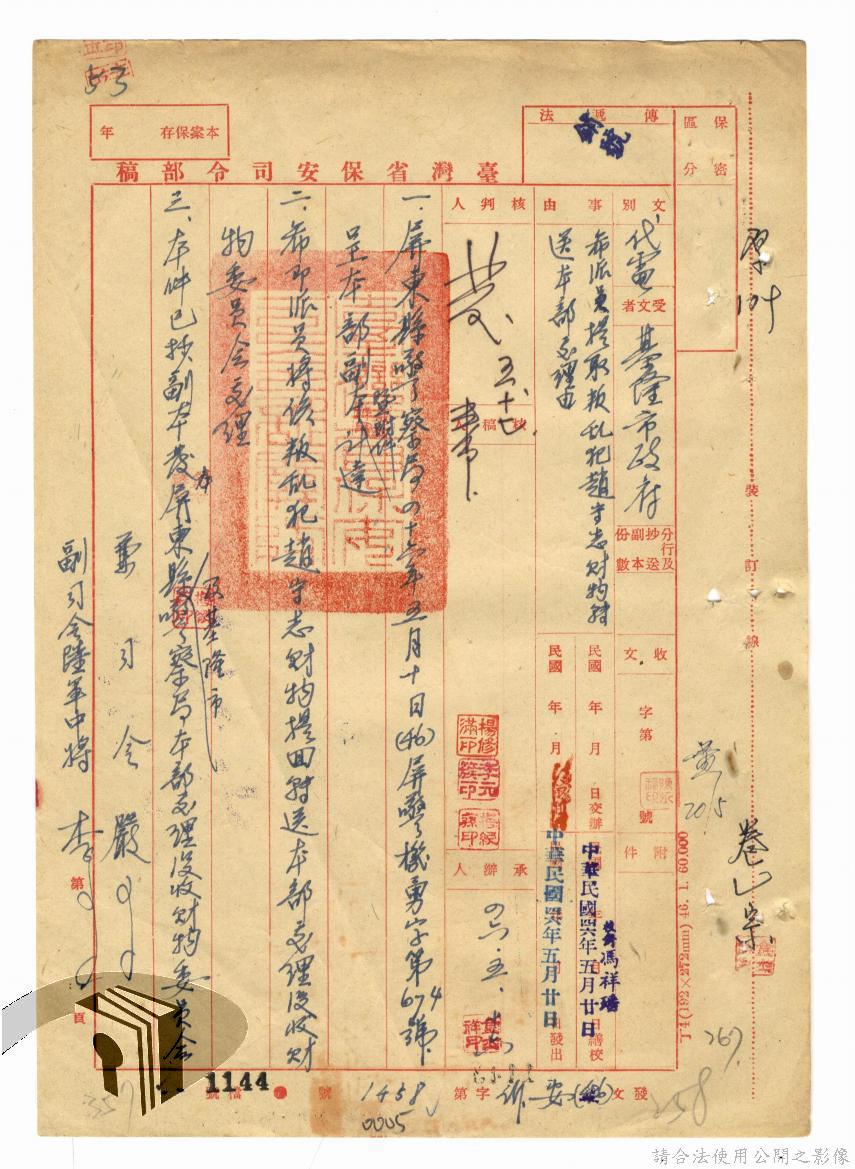 53
年　存保案本
法　遞　傳
保密
區分
臺灣省保安司令部稿
文別
代電
受文者
基隆市政府
分行及抄送副本份數
事由
希派員提取叛乱犯趙守志財物轉
送本部處理由
核判人
核稿人
一、屏東縣警察局四十六年五月十日(46)屏警機勇字第674號
呈本部副本暨附件計達
二、希即派員將該叛乱犯趙守志財物提回轉送本部處理沒收財
物委員会處理
三、本件已抄副本發屏東縣警察局本部處理沒收財物委員会
及基隆市
兼司令嚴
副司令陸軍中將李
收文
字第
號
附件
民國　年　月　日交辦
中華民國四六年五月廿日
校對 馮祥璠
日繕校
中華民國四六年五月廿日
日發出
承辦人
四六.五.
楊修滿印
發文
(46)安
字第
1458
0005
號
檔號
1144
第　頁
裝訂線
卷宗
267
258
357
205
請合法使用公開之影像